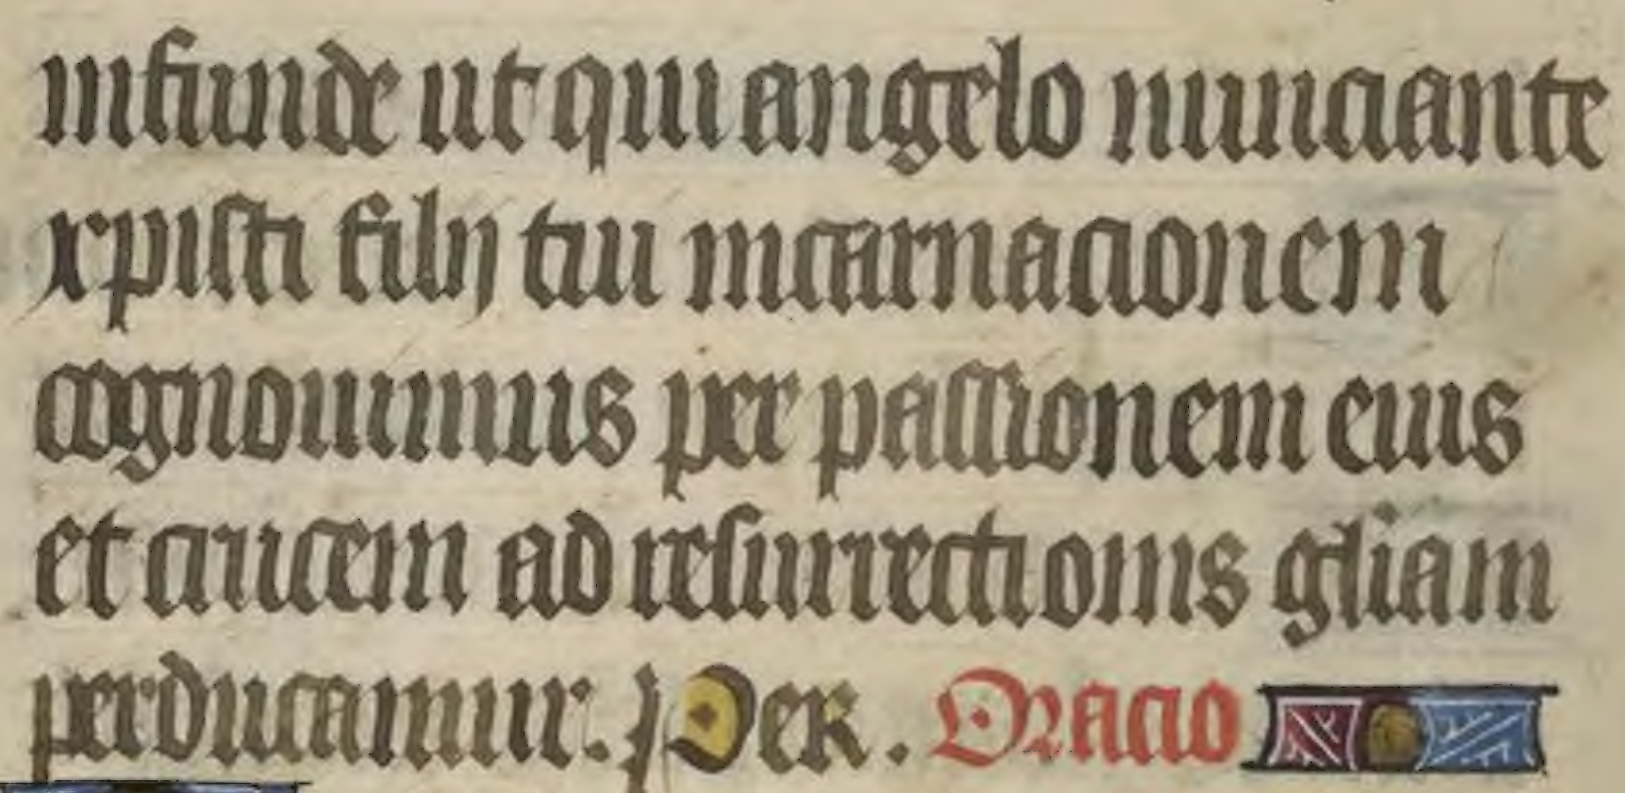 infunde ut qui angelo nunciante
xpisti filij tui incarnacionem
cognouimus per passionem eius
et crucem ad resurrectionis gliam
perducamur. Per. Oracio